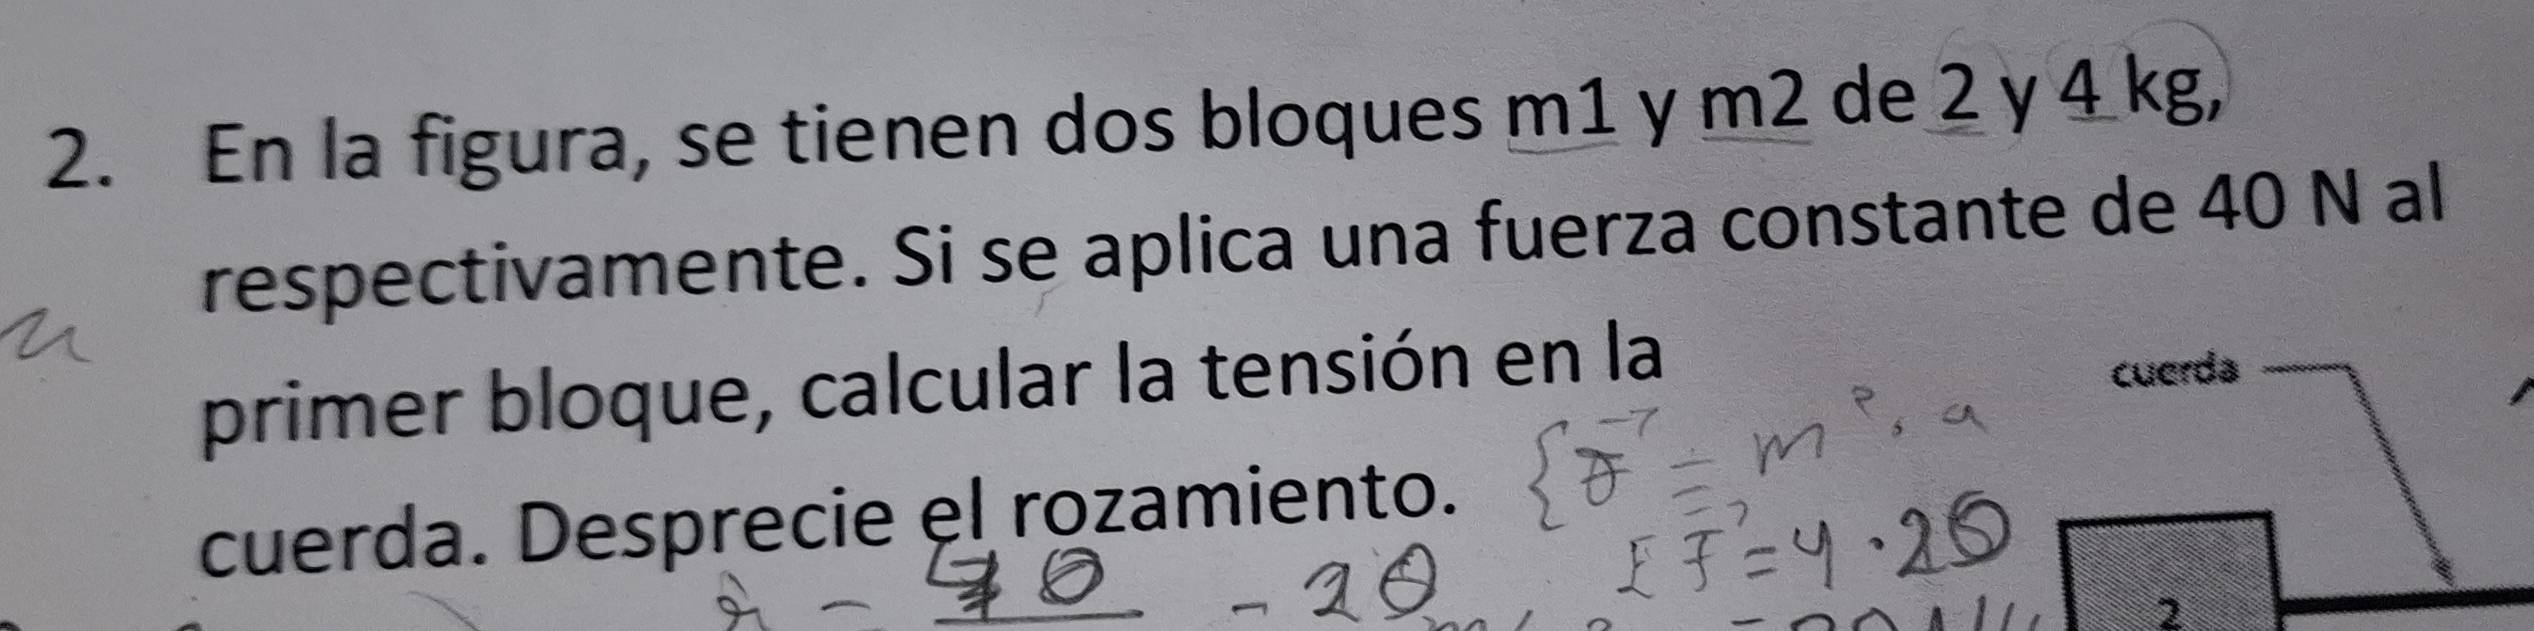 2. En la figura, se tienen dos bloques m1 y m2 de 2 y 4 kg,
respectivamente. Si se aplica una fuerza constante de 40 N al
primer bloque, calcular la tensión en la
cuerda
cuerda. Desprecie el rozamiento.
= m . a
= 4 . 20
- 20
2